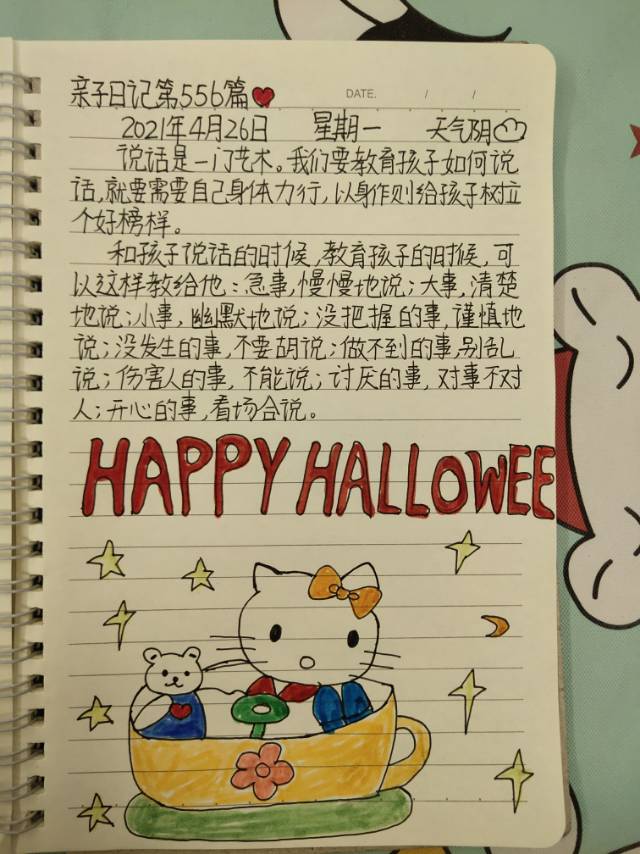 亲子日记第556篇
DATE. / /
2021年4月26日 星期一 天气阴
说话是一门艺术。我们要教育孩子如何说
话,就要需要自己身体力行,以身作则给孩子树立
个好榜样。
和孩子说话的时候,教育孩子的时候,可
以这样教给他:急事,慢慢地说;大事,清楚
地说;小事,幽默地说;没把握的事,谨慎地
说;没发生的事,不要胡说;做不到的事,别乱
说;伤害人的事,不能说;讨厌的事,对事不对
人;开心的事,看场合说。
HAPPY HALLOWEE